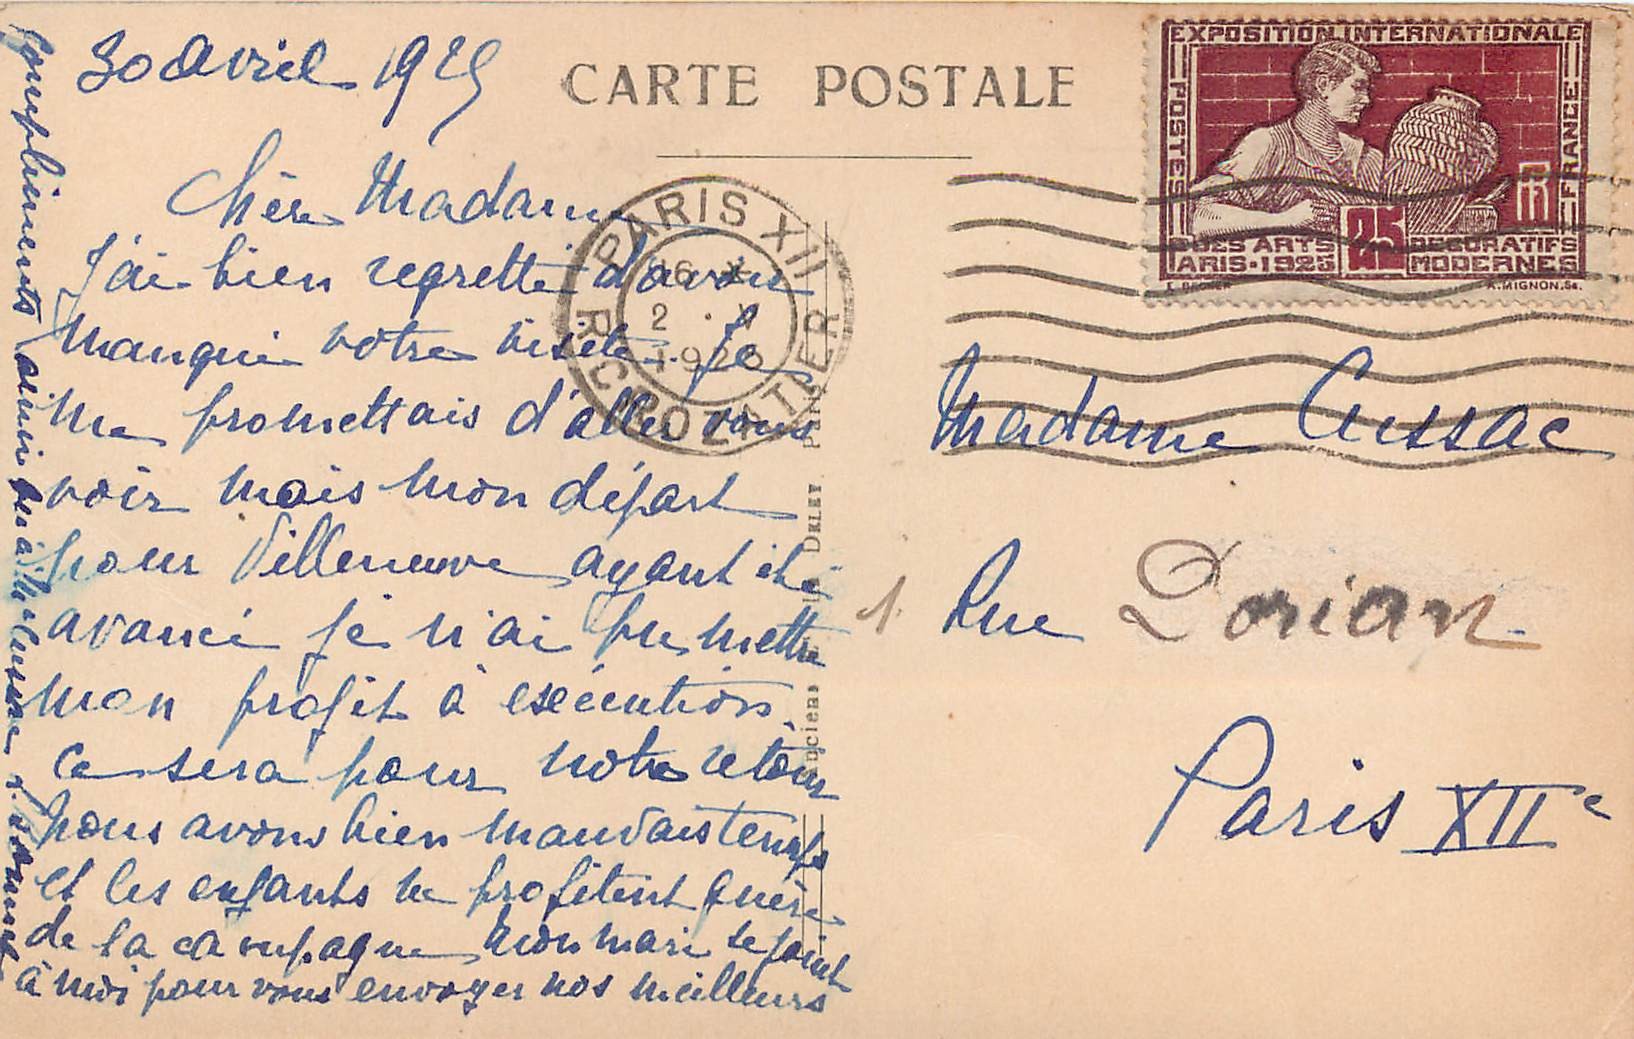 30 avril 1925
CARTE POSTALE
EXPOSITION INTERNATIONALE
POSTES
FRANCE
RF
25
DES ARTS DECORATIFS
PARIS·1925 MODERNES
E. BECKER A. MIGNON. Sc.
PARIS XII
16
2
R. CROZATIER
Chère Madame
J'ai bien regretté d'avoir
manqué votre visite. Je
me promettais d'aller vous
voir mais mon départ
pour Villeneuve ayant été
avancé je n'ai pu mettre
mon projet à exécution.
Ce sera pour notre retour
nous avons bien mauvais temps
et les enfants ne profitent guère
de la campagne mon mari se joint
à moi pour vous envoyer nos meilleurs
compliments ainsi qu'à
Madame Aussac
1 Rue Dorian
Paris XIIe